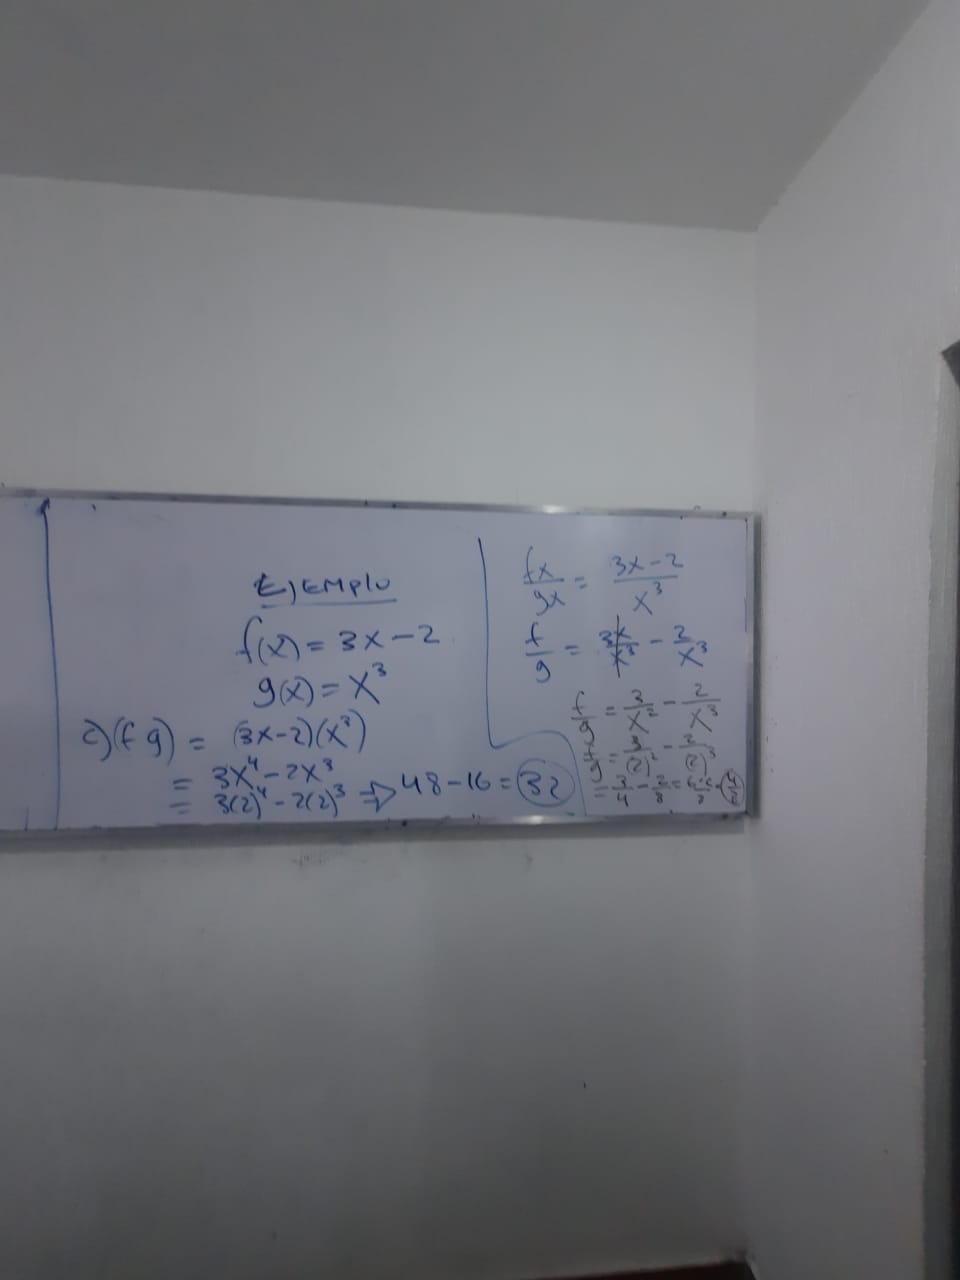 Ejemplo
f(x) = 3x-2
g(x) = x³
c)(f g) = (3x-2)(x³)
= 3x⁴-2x³
= 3(2)⁴-2(2)³ ⇒ 48-16 = 32
fx/gx = 3x-2/x³
f/g = 3x/x³ - 2/x³
f/g = 3/x² - 2/x³
f/g = 3/(2)² - 2/(2)³
= 3/4 - 2/8 =